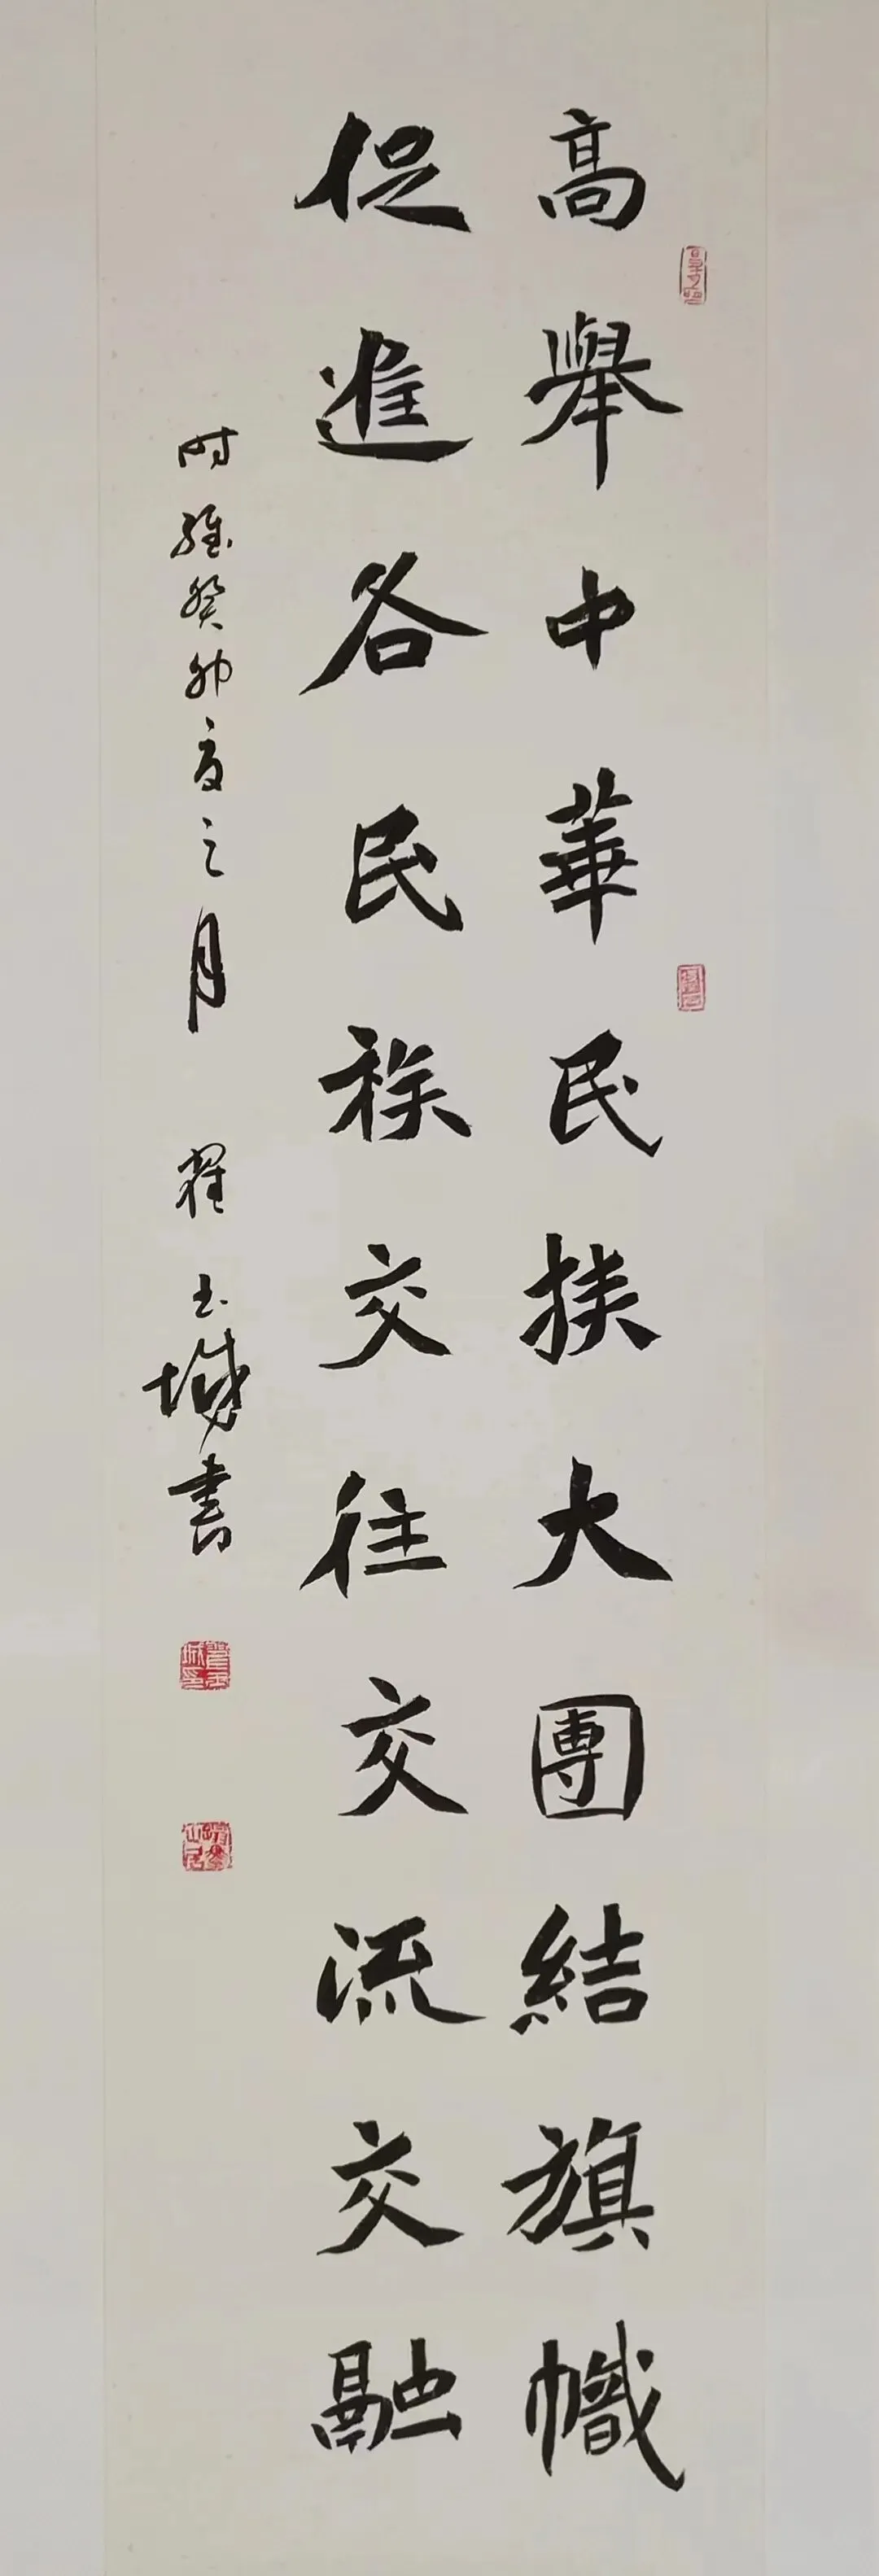 高舉中華民族大團結旗幟
促進各民族交往交流交融
時維癸卯夏之月 翟玉城書